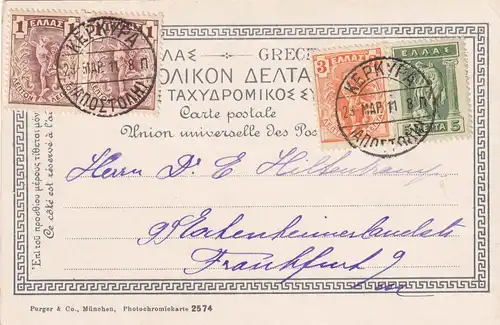 1 ΕΛΛΑΣ 1
ΚΕΡΚΥΡΑ
24 ΜΑΡ 11 8 Π
ΑΠΟΣΤΟΛΗ
ΛΛΑΣ GRECE
ΟΛΙΚΟΝ ΔΕΛΤΑ
ΤΑΧΥΔΡΟΜΙΚΟΣ ΣΥ
Carte postale
Union universelle des Pos
3 ΕΛΛΑΣ
ΕΛΛΑΣ
ΚΕΡΚΥΡΑ
24 ΜΑΡ 11 8 Π
ΑΠΟΣΤΟΛΗ
5 5
Ἐπὶ τοῦ προσθίου μέρους τίθεται μόν
Ce côté est réservé à l'a
Herrn Dr E
Frankfurt
Purger & Co., München, Photochromiekarte 2574